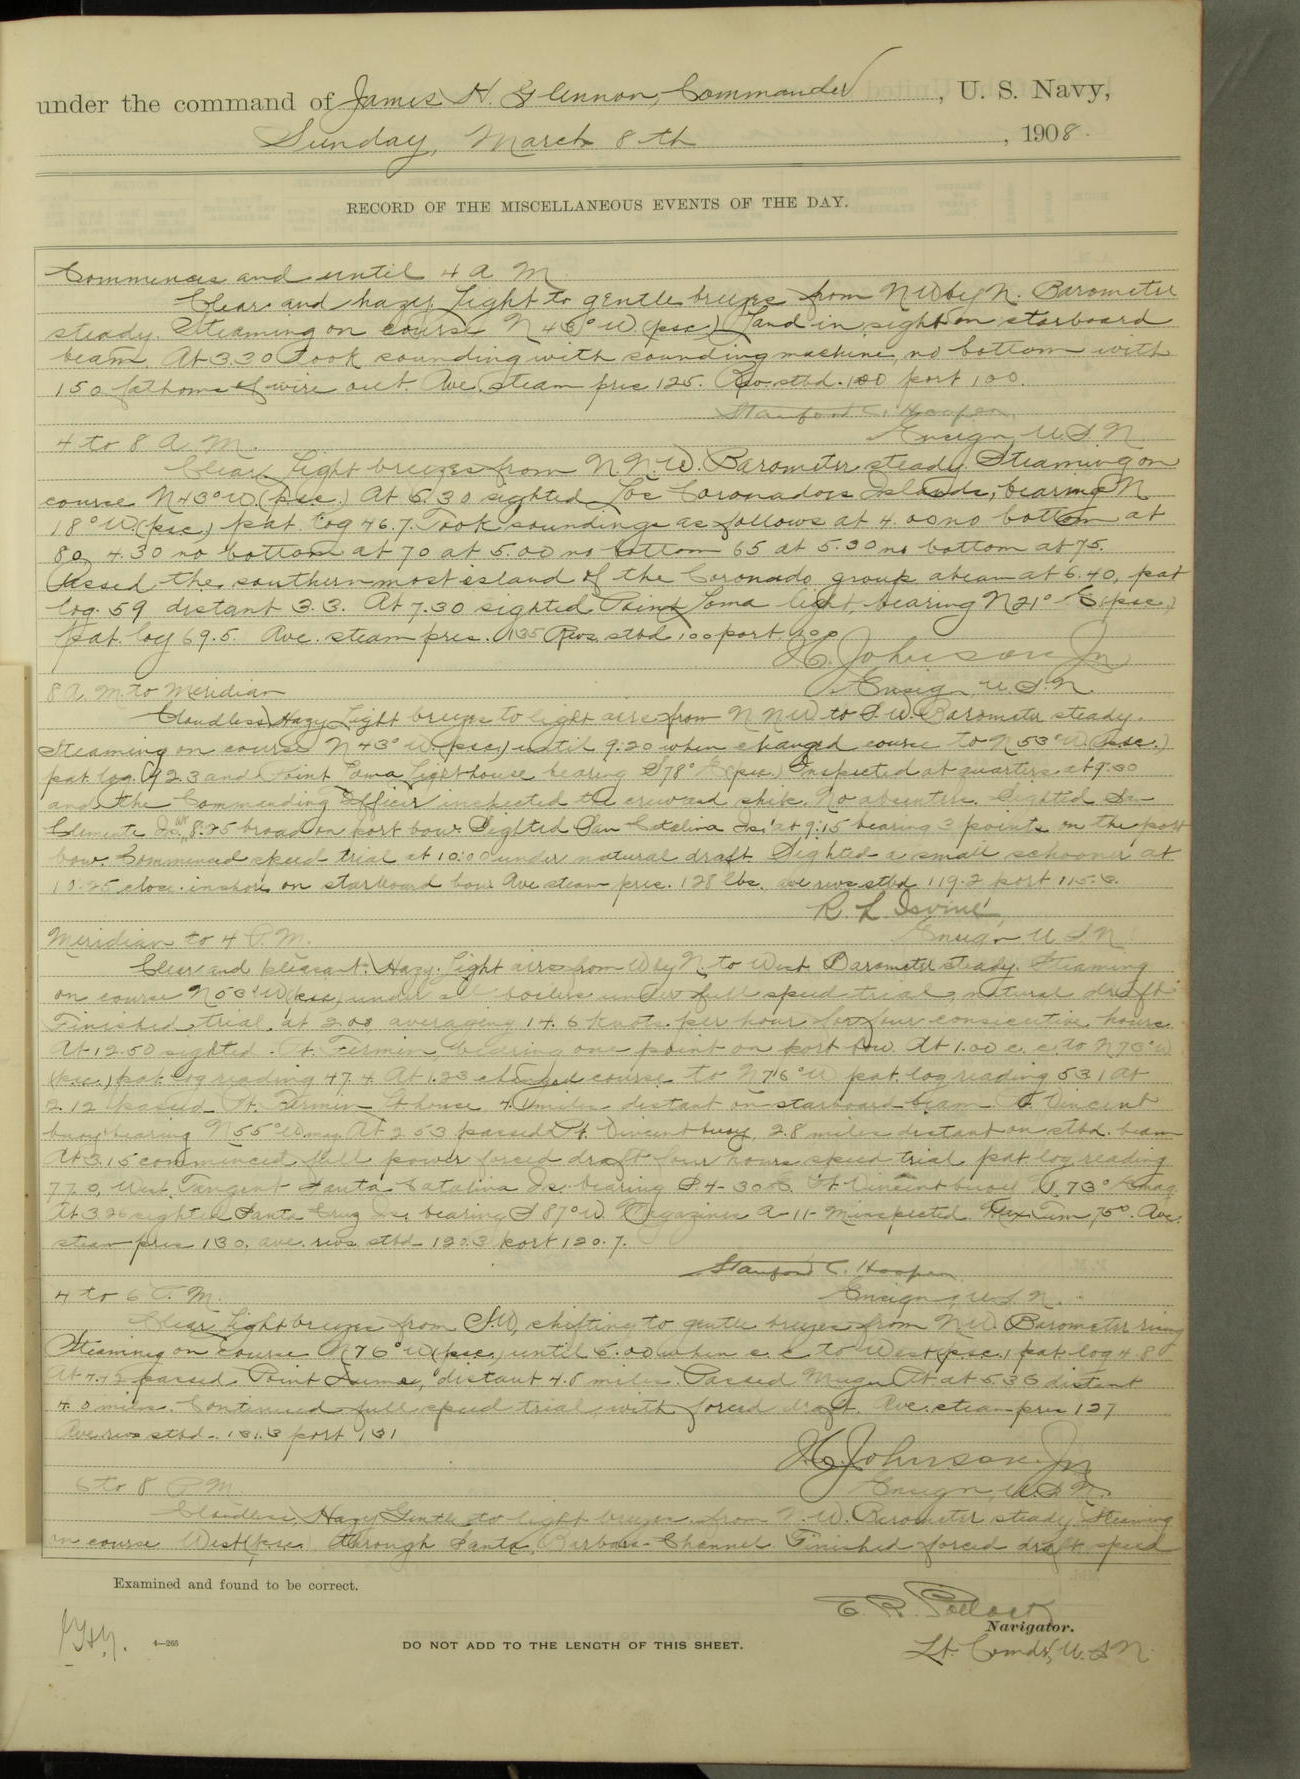 under the command of James H. Glennon, Commander, U. S. Navy,
Sunday, March 8th, 1908.
RECORD OF THE MISCELLANEOUS EVENTS OF THE DAY.
Commences and until 4 A. M.
Clear and hazy. Light to gentle breezes from NW by N. Barometer
steady. Steaming on course N 43° W. (psc.) Land in sight on starboard
beam. At 3.30 took sounding with sounding machine, no bottom with
150 fathoms of wire out. Ave. steam pres. 125. Rev. stbd. 100 port 100.
Stanford C. Hooper,
Ensign, U.S.N.
4 to 8 A. M.
Clear. Light breezes from N.N.W. Barometer steady. Steaming on
course N 43° W (psc.) At 5.30 sighted Los Coronados Islands, bearing N
18° W (psc.) pat. log 46.7. Took soundings as follows at 4.00 no bottom at
80, 4.30 no bottom at 70 at 5.00 no bottom 65 at 5.30 no bottom at 75.
Passed the southernmost island of the Coronado group abeam at 6.40, pat
log. 59 distant 3.3. At 7.30 sighted Point Loma light, bearing N 21° E (psc.)
pat. log 69.5. Ave. steam pres. 135 Revs. stbd 100 port 100
H. Johnson Jr
Ensign, U.S.N.
8 A. M. to Meridian
Cloudless. Hazy. Light breezes to light airs from N N W to S. W. Barometer steady.
Steaming on course N 43° W (psc.) until 9:20 when changed course to N 53° W. (psc.)
pat. log. 92.3 and Point Loma Lighthouse bearing S 78° E (psc.) Inspected at quarters at 9:30
and the Commanding Officer inspected the crew and ship. No absentees. Sighted San
Clemente Is. at 8:25 broad on port bow. Sighted San Catalina Is. at 9:15 bearing 3 points on the port
bow. Commenced speed trial at 10:00 under natural draft. Sighted a small schooner at
10:25 close inshore on starboard bow Ave steam pres. 128 lbs. ave revs stbd 119.2 port 115.6.
R. L. Irvine,
Ensign U.S.N
Meridian to 4 P. M.
Clear and pleasant. Hazy. Light airs from W by N. to West. Barometer steady. Steaming
on course N 53° W (psc) under all boilers under full speed trial, natural draft
Finished trial at 2.00 averaging 14.6 knots per hour for four consecutive hours.
At 12.50 sighted Pt. Fermin, bearing one point on port bow. At 1.00 c. c. to N 73° W
(psc.) pat. log reading 47.4 At 1.23 changed course to N 76° W pat. log reading 53.1 At
2.12 passed Pt. Fermin Lt house 4. miles distant on starboard beam Pt Vincent
buoy bearing N 55° W mag. At 2 53 passed Pt. Vincent buoy, 2.8 miles distant on stbd. beam
At 3.15 commenced full power forced draft four hours speed trial pat log reading
77.0, West Tangent Santa Catalina Is. bearing S. 4-30 E. Pt Vincent buoy N. 73° E mag.
At 3.26 sighted Santa Cruz Is. bearing S 87° W. Magazines A-11-M inspected. Max. Tem 75°. Ave.
steam pres 130. ave. revs. stbd 120.3 port 120.7.
Stanford C. Hooper
Ensign, U.S.N.
4 to 6 P. M.
Clear Light breezes from S.W, shifting to gentle breezes from N.W. Barometer rising
Steaming on course N 76° W (psc.) until 5.00 when c. c. to West (psc.) pat log 4.8
At 4.42 passed Point Dume, distant 4.5 miles. Passed Mugu Pt at 5.36 distant
4.0 miles. Continued full speed trial with forced draft. Ave. steam pres 127
Ave revs stbd. 131.3 port 131
H. Johnson Jr
Ensign, U.S.N.
6 to 8 P.M.
Cloudless, Hazy Gentle to light breezes from N. W. Barometer steady. Steaming
on course West (psc.) through Santa Barbara Channel. Finished forced draft speed
Examined and found to be correct.
E. R. Pollock
Navigator.
4—265
DO NOT ADD TO THE LENGTH OF THIS SHEET.
Lt. Comdr, U.S.N.